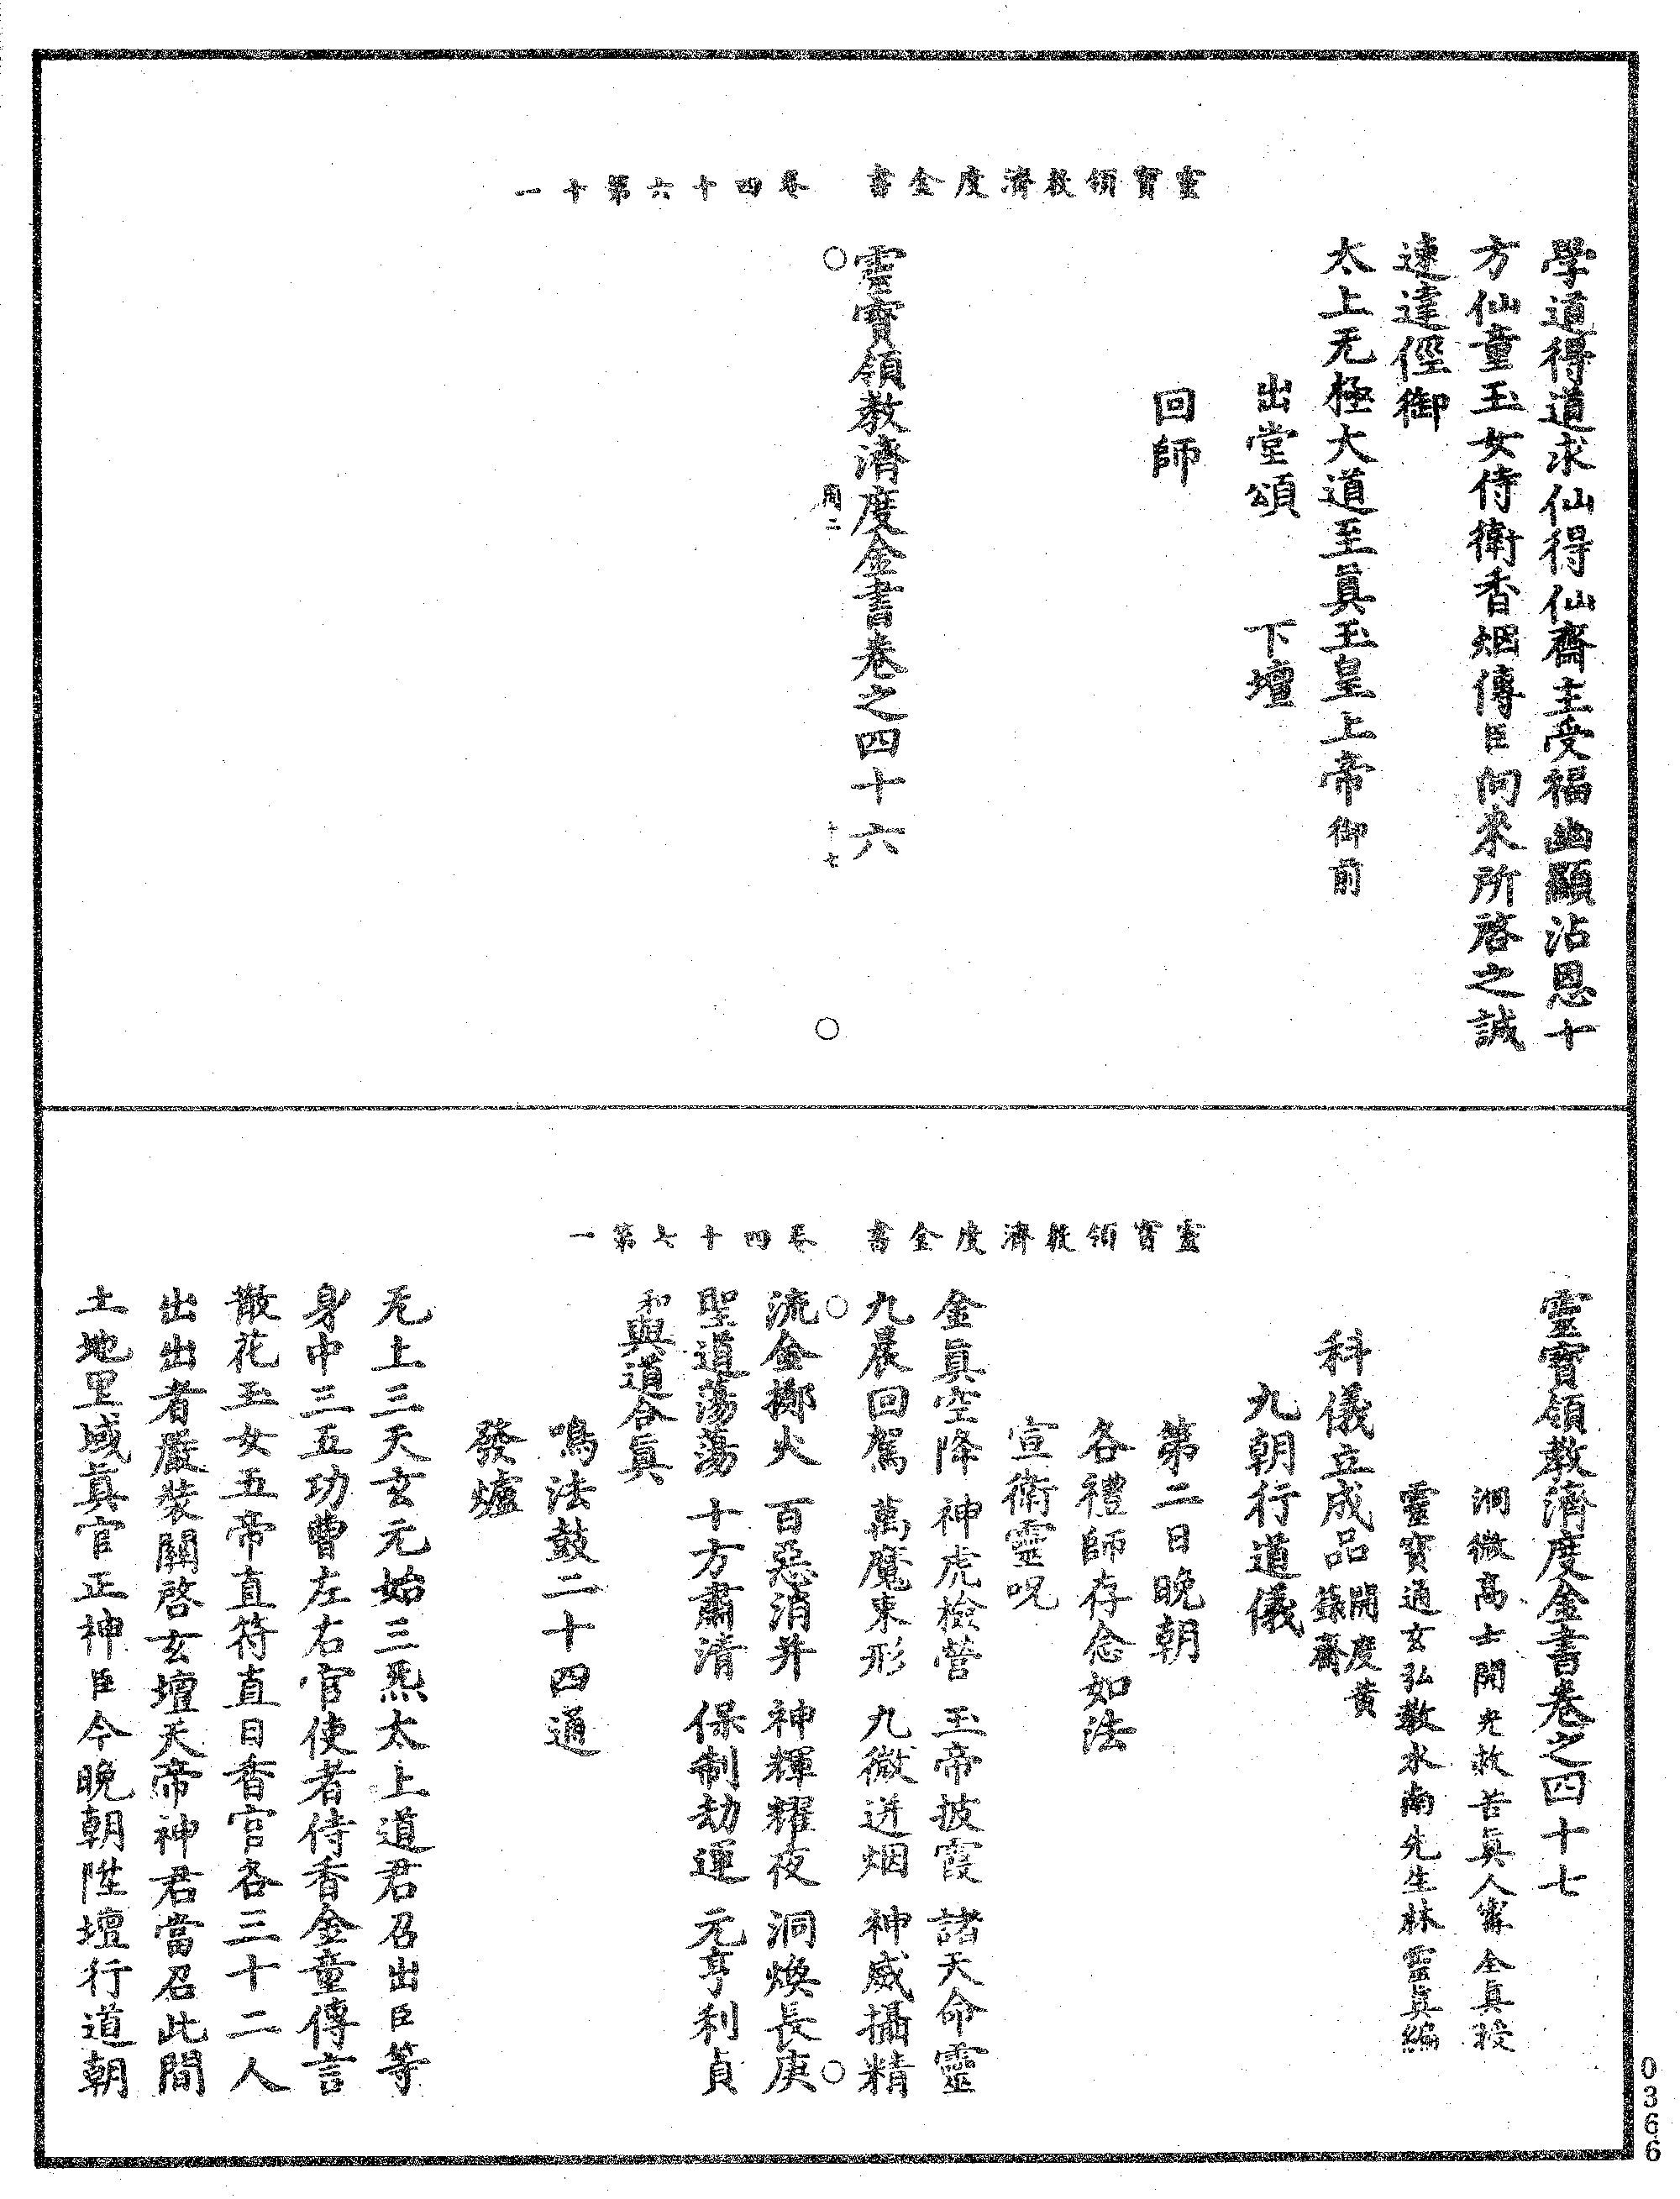 靈寶領教濟度金書　卷四十六第十一
學道得道求仙得仙齋主受福幽顯沾恩十
方仙童玉女侍衛香烟傳臣向來所啓之誠
速達俓御
太上无極大道至眞玉皇上帝御前
出堂頌　下壇
回師
靈寶領教濟度金書卷之四十六
十七
靈寶領教濟度金書　卷四十七第一
靈寶領教濟度金書卷之四十七
洞微高士開光救苦眞人甯全真授
靈寶通玄弘教水南先生林靈眞編
科儀立成品開度黄籙齋
九朝行道儀
第二日晚朝
各禮師存念如法
宣衛靈呪
金眞空降　神虎檢營　玉帝披霞　諸天命靈
九晨回駕　萬魔束形　九微迸烟　神威攝精
流金擲火　百惡消并　神輝耀夜　洞煥長庚
聖道蕩蕩　十方肅清　保制劫運　元亨利貞
和與道合眞
鳴法鼓二十四通
發爐
无上三天玄元始三炁太上道君召出臣等
身中三五功曹左右官使者侍香金童傳言
散花玉女五帝直符直日香官各三十二人
出出者嚴裝關啓玄壇天帝神君當召此間
土地里域眞官正神臣今晚朝陞壇行道朝
0366